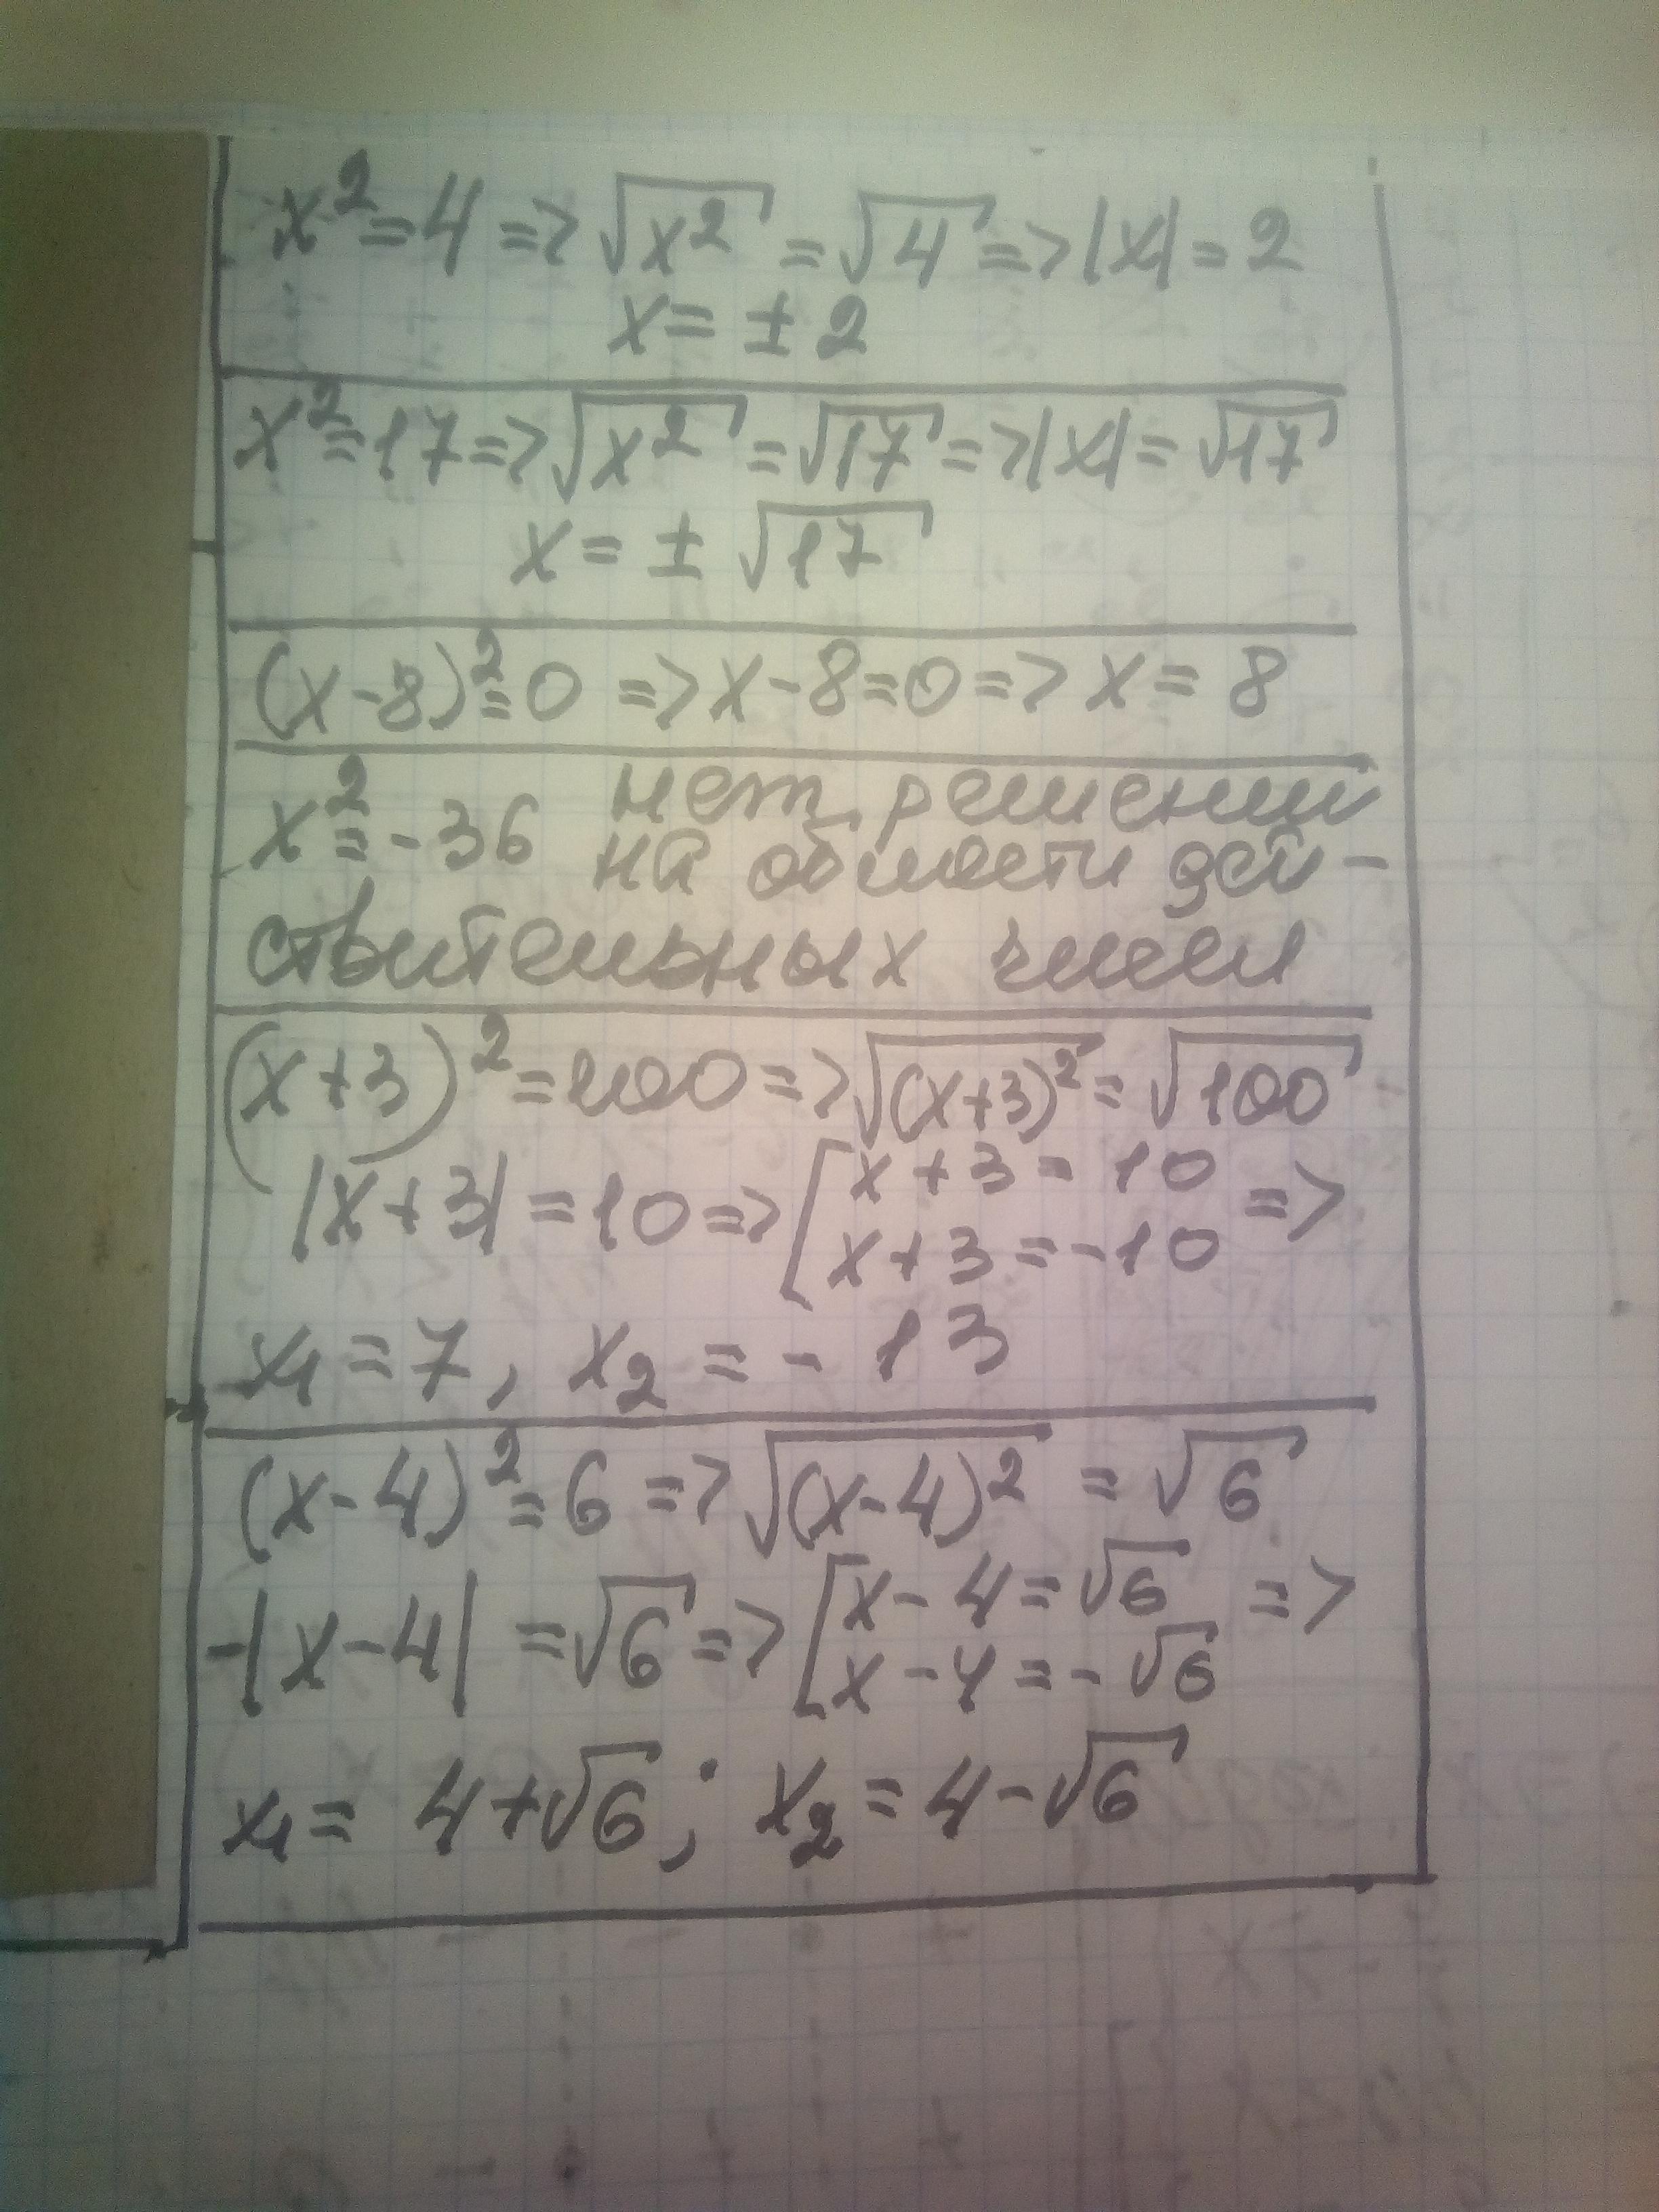 x²=4 => √x² = √4 => |x| = 2
x = ± 2
x²=17 => √x² = √17 => |x| = √17
x = ± √17
(x-8)²=0 => x-8=0 => x = 8
x²=-36 нет решений
на области дей-
ствительных чисел
(x+3)²=100 => √(x+3)² = √100
|x+3| = 10 => [x+3 = 10
x+3 = -10 =>
x₁ = 7, x₂ = - 13
(x-4)²=6 => √(x-4)² = √6
-|x-4| = √6 => [x-4 = √6
x-4 = -√6 =>
x₁ = 4+√6; x₂ = 4-√6